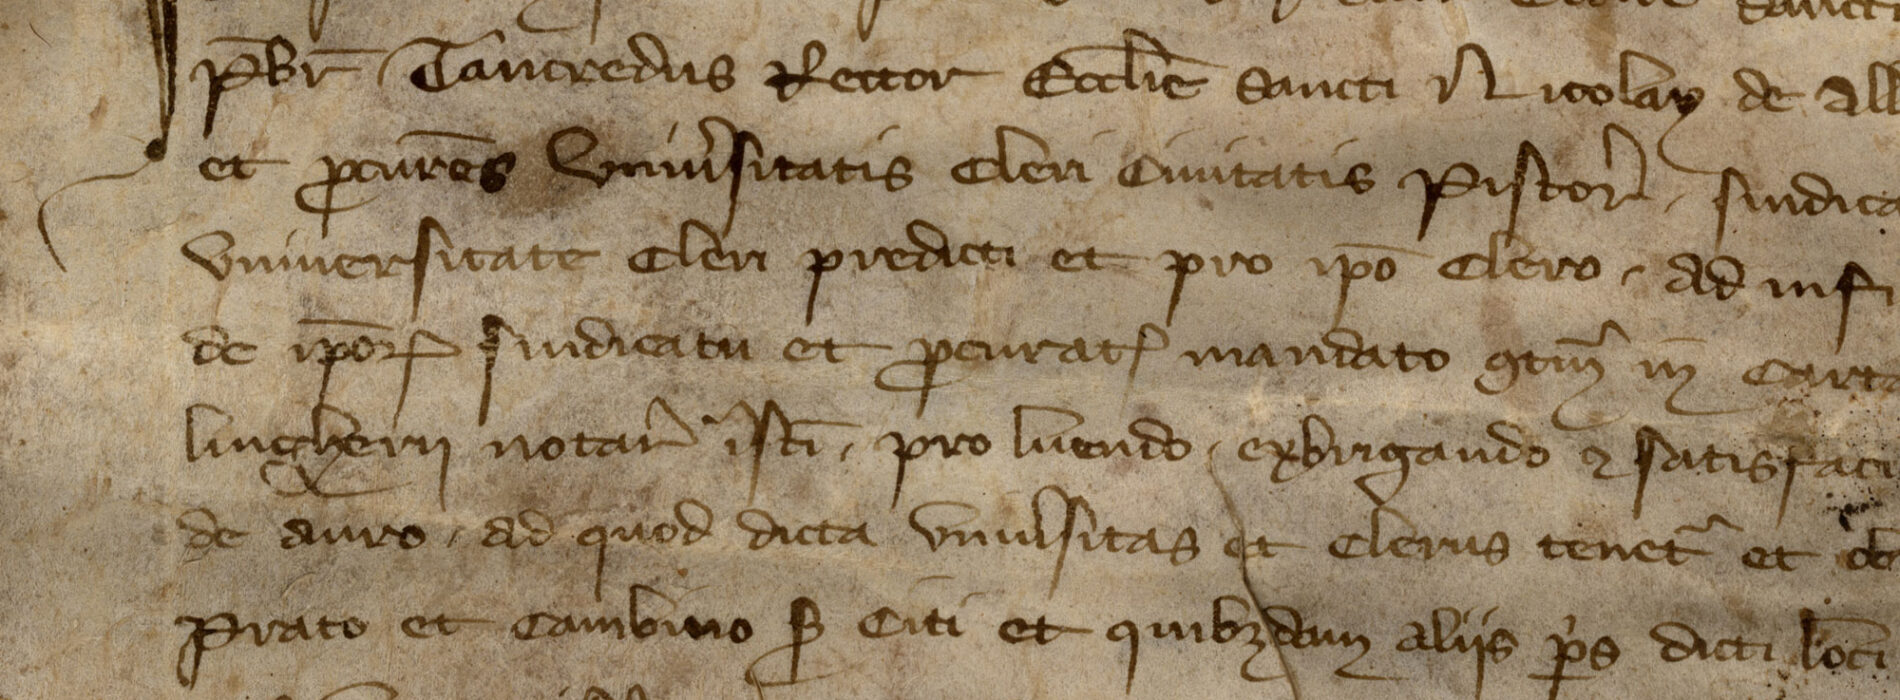 sanct
pbr Tancredus Rector Ecclie sancti Nicolay de all
et pcures Vniusitatis Cleri Ciuitatis Pistor. sindica
Vniuersitate Cleri predicti et pro ipo Clero. ad infr
de ipor sindicatu et pcurat mandato gtm in carta
lingherii notar isti. pro luendo. exbrigando 7 satisfac
de auro. ad quod dicta Vniusitas et Clerus tenet et ob
Prato et Cambino s Citi et quibzdam aliis ps dicti loci